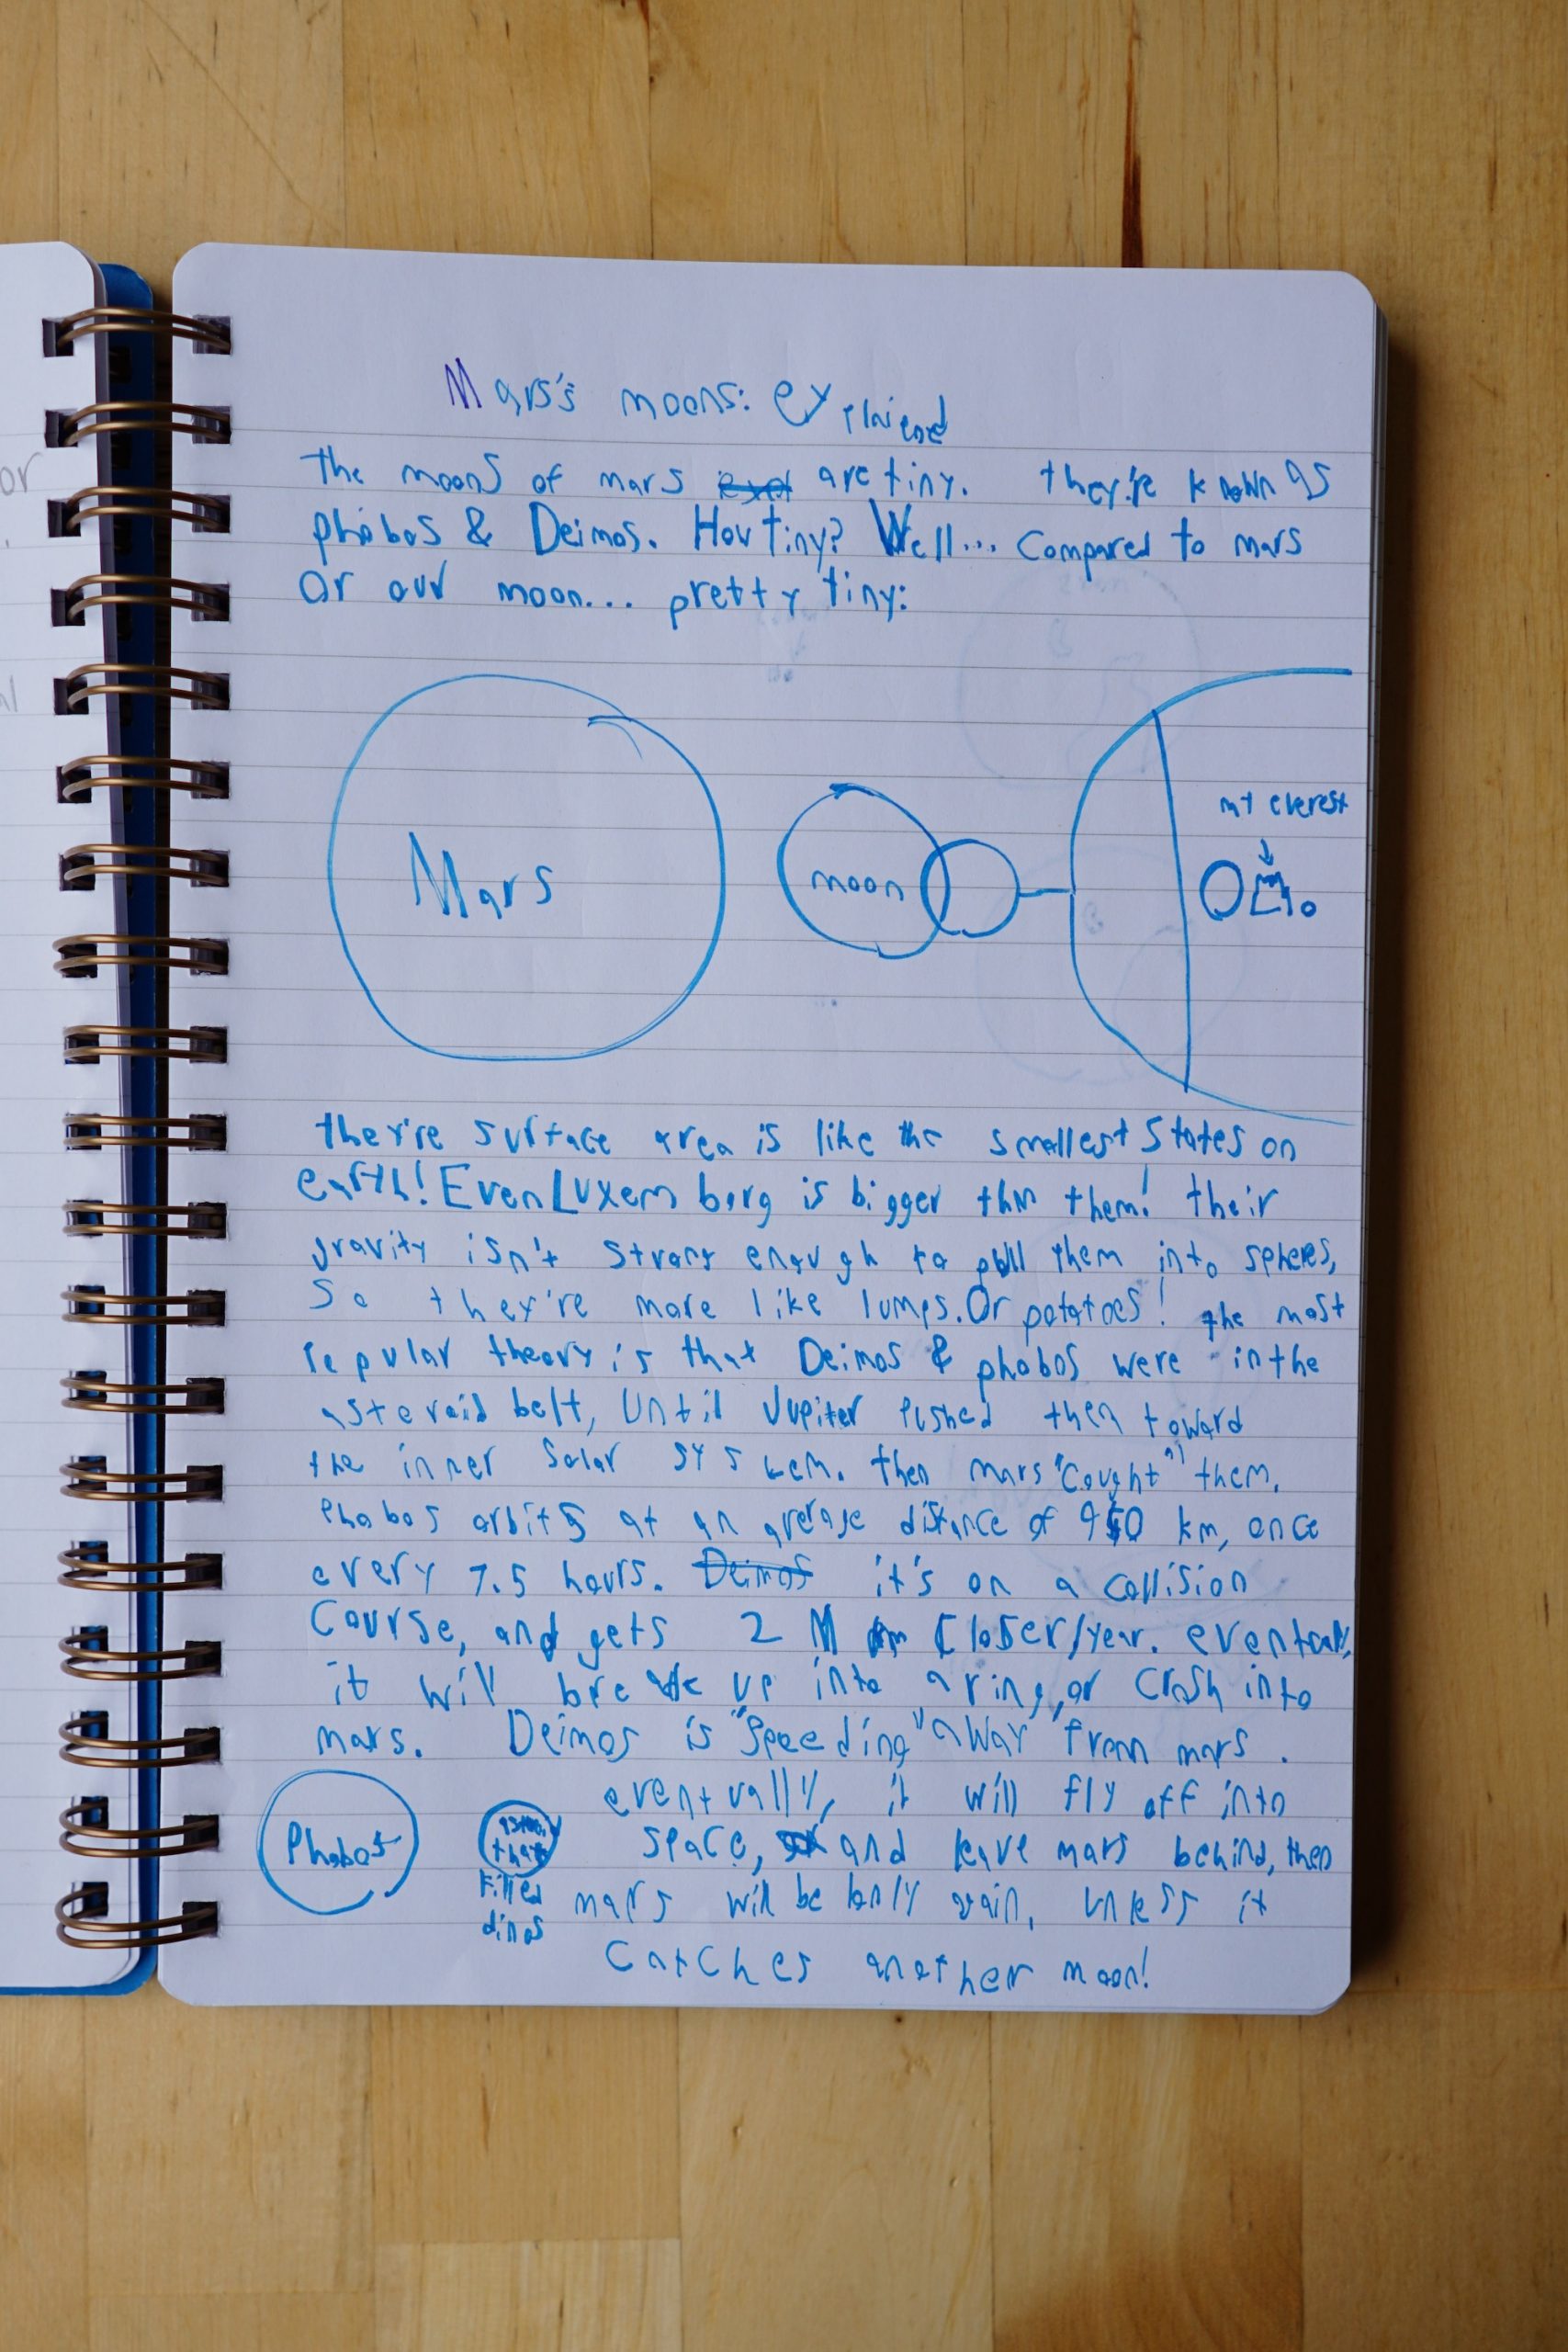 Mars's moons: explained
The moons of mars are tiny. they're known as
phobos & Deimos. How tiny? Well... Compared to mars
or our moon... pretty tiny:
mt everest
Mars
moon
they're surface area is like the smallest States on
earth! Even Luxem borg is bigger thin them! their
gravity isn't strong enough to pull them into spheres,
So they're more like lumps. Or potatoes! the most
popular theory is that Deimos & phobos were in the
asteroid belt, Until Jupiter pushed them toward
the inner Solar system. then mars "Cought" them.
Phobos orbits at an average distance of km, once
every 7.5 hours. Deimos it's on a collision
Course, and gets 2 M Closer/year. eventually,
it will break up into a ring, or Crash into
mars. Deimos is "Speeding" away from mars.
eventually, it will fly off into
Phobos
space, and leave mars behind, then
that
killed
mars will be lonly again, unless it
dinos
Catches another moon!
or